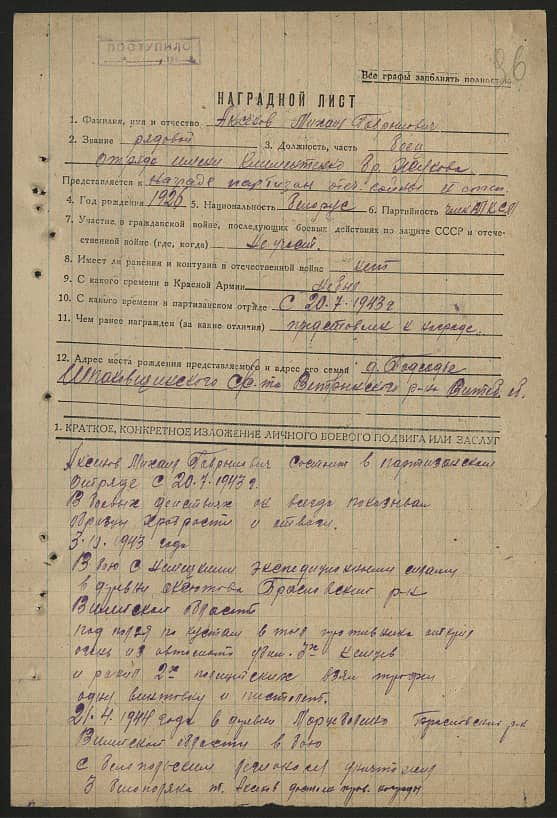 ПОСТУПИЛО
96
Все графы заполнять полностью
НАГРАДНОЙ ЛИСТ
1. Фамилия, имя и отчество Аксенов Михаил Гаврилович
2. Звание рядовой 3. Должность, часть боец
отряда имени
Представляется к награде партизан отеч. войны
4. Год рождения 1920 5. Национальность белорус 6. Партийность член ВЛКСМ
7. Участие в гражданской войне, последующих боевых действиях по защите СССР и отече-
ственной войне (где, когда) не участ.
8. Имеет ли ранения и контузия в отечественной войне нет
9. С какого времени в Красной Армии не был
10. С какого времени в партизанском отряде С 20.7.1943 г
11. Чем ранее награжден (за какие отличия) представлен к награде.
12. Адрес места рождения представляемого и адрес его семьи д.
с/со-та р-на Витеб. об.
1. КРАТКОЕ, КОНКРЕТНОЕ ИЗЛОЖЕНИЕ ЛИЧНОГО БОЕВОГО ПОДВИГА ИЛИ ЗАСЛУГ
Аксенов Михаил Гаврилович состоит в партизанском
отряде с 20.7.1943 г.
В боевых действиях он всегда показывал
образцы храбрости и отваги.
1943 года
В бою с немецкими экспедиционными силами
в дуевни р-н
Вилейской области
под полз по кустам в тыл противника открыл
огонь из автомата убил 3х немцев
и ранил 2х полицейских взял трофеи
одну винтовку и пистолет.
21.4.1944 года в дуевни р-н
Вилейской области в бою
с
3 т. Аксенов достоин прав. награды